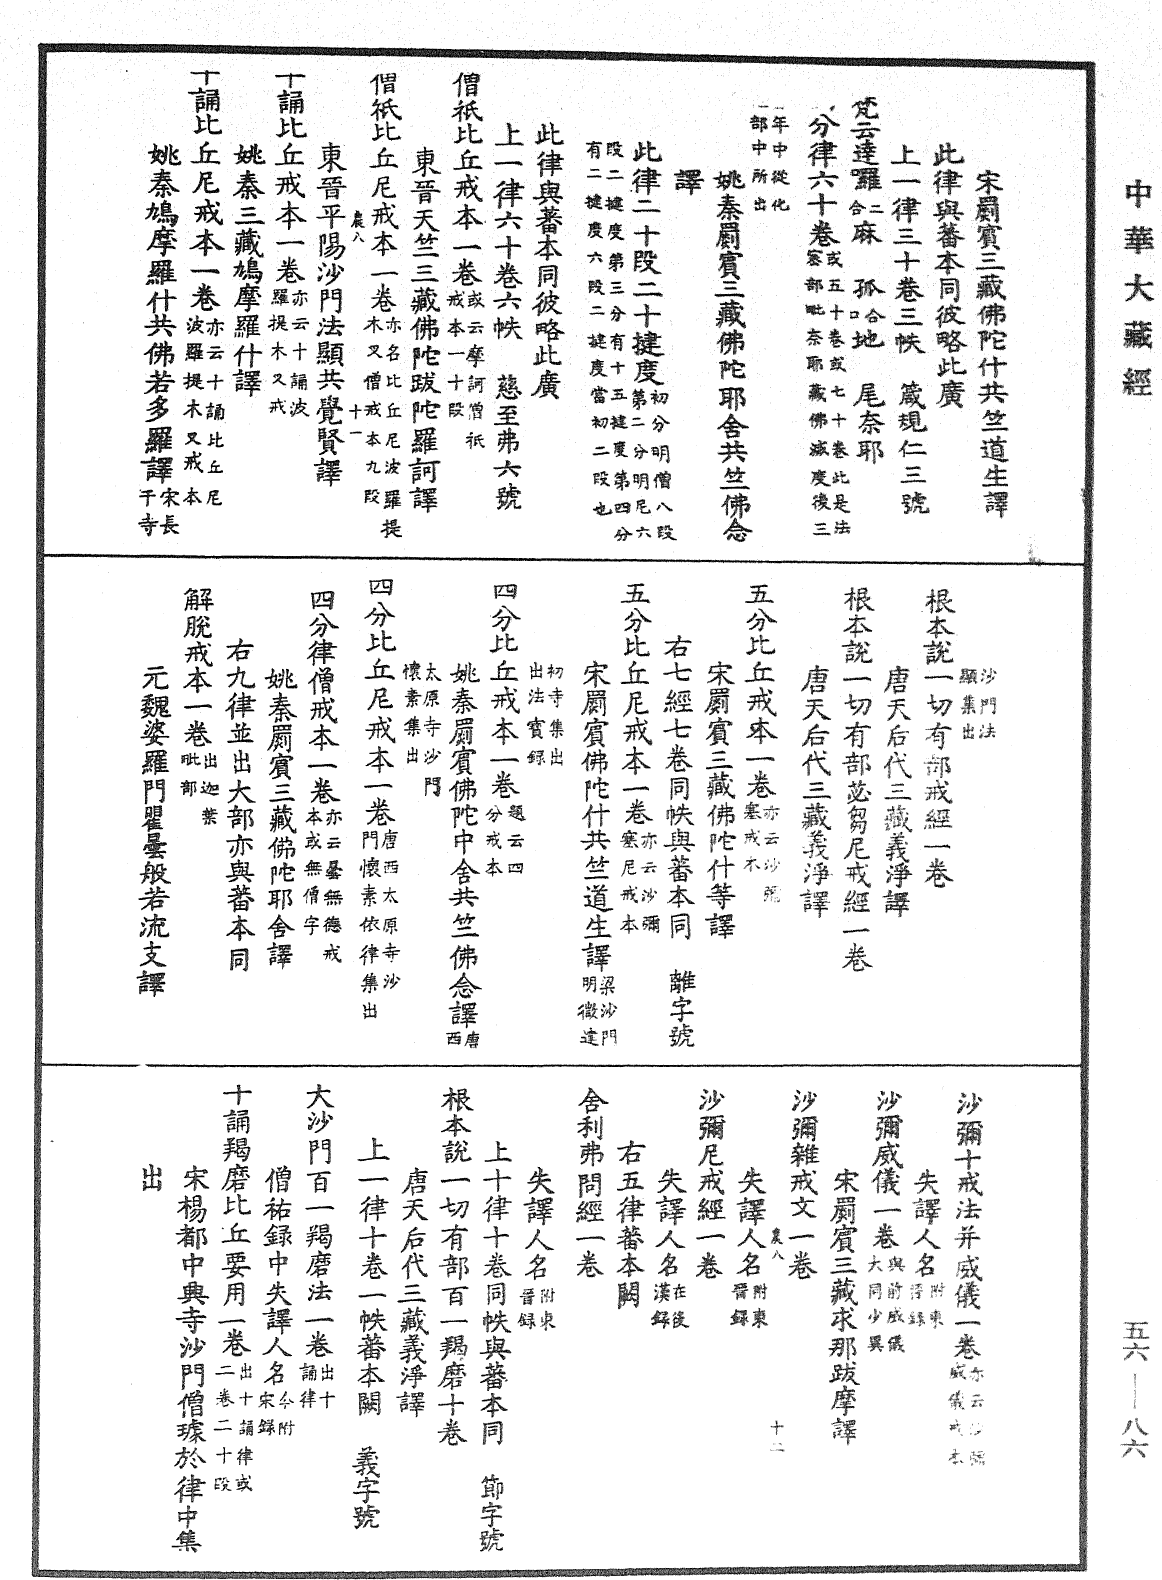 中華大藏經
宋罽賓三藏佛陀什共竺道生譯
此律與蕃本同彼略此廣
上一律三十卷三帙　箴規仁三號
梵云達囉二合麻　孤口合地　尾奈耶
分律六十卷或五十卷或七十卷此是法
塞部毗奈耶藏佛滅度後三
年中從化
部中所出
姚秦罽賓三藏佛陀耶舍共竺佛念
譯
此律二十段二十揵度初分明僧八段
第二分明尼六
段二揵度第三分有十五揵度第四分
有二揵度六段二揵度當初二段也
此律與蕃本同彼略此廣
上一律六十卷六帙　慈至弗六號
僧祇比丘戒本一卷或云摩訶僧祇
戒本一十段
東晉天竺三藏佛陀跋陀羅訶譯
僧祇比丘尼戒本一卷亦名比丘尼波羅提
木叉僧戒本九段
農八　十一
東晉平陽沙門法顯共覺賢譯
十誦比丘戒本一卷亦云十誦波
羅提木叉戒
姚秦三藏鳩摩羅什譯
十誦比丘尼戒本一卷亦云十誦比丘尼
波羅提木叉戒本
姚秦鳩摩羅什共佛若多羅譯宋長
干寺
沙門法
顯集出
根本說一切有部戒經一卷
唐天后代三藏義淨譯
根本說一切有部苾芻尼戒經一卷
唐天后代三藏義淨譯
五分比丘戒本一卷亦云沙彌
塞戒本
宋罽賓三藏佛陀什等譯
右七經七卷同帙與蕃本同　離字號
五分比丘尼戒本一卷亦云沙彌
塞尼戒本
宋罽賓佛陀什共竺道生譯梁沙門
明徽達
初寺集出
出法寶錄
四分比丘戒本一卷題云四
分戒本
姚秦罽賓佛陀中舍共竺佛念譯唐
西
太原寺沙門
懷素集出
四分比丘尼戒本一卷唐西太原寺沙
門懷素依律集出
四分律僧戒本一卷亦云曇無德戒
本或無僧字
姚秦罽賓三藏佛陀耶舍譯
右九律並出大部亦與蕃本同
解脫戒本一卷出迦葉
毗部
元魏婆羅門瞿曇般若流支譯
沙彌十戒法并威儀一卷亦云沙彌
威儀戒本
失譯人名附東
晉錄
沙彌威儀一卷與前威儀
大同少異
宋罽賓三藏求那跋摩譯
沙彌雜戒文一卷
農八　十二
失譯人名附東
晉錄
沙彌尼戒經一卷
失譯人名在後
漢錄
右五律蕃本闕
舍利弗問經一卷
失譯人名附東
晉錄
上十律十卷同帙與蕃本同　節字號
根本說一切有部百一羯磨十卷
唐天后代三藏義淨譯
上一律十卷一帙蕃本闕　義字號
大沙門百一羯磨法一卷出十
誦律
僧祐錄中失譯人名今附
宋錄
十誦羯磨比丘要用一卷出十誦律或
二卷二十段
宋楊都中興寺沙門僧璩於律中集
出
五六——八六